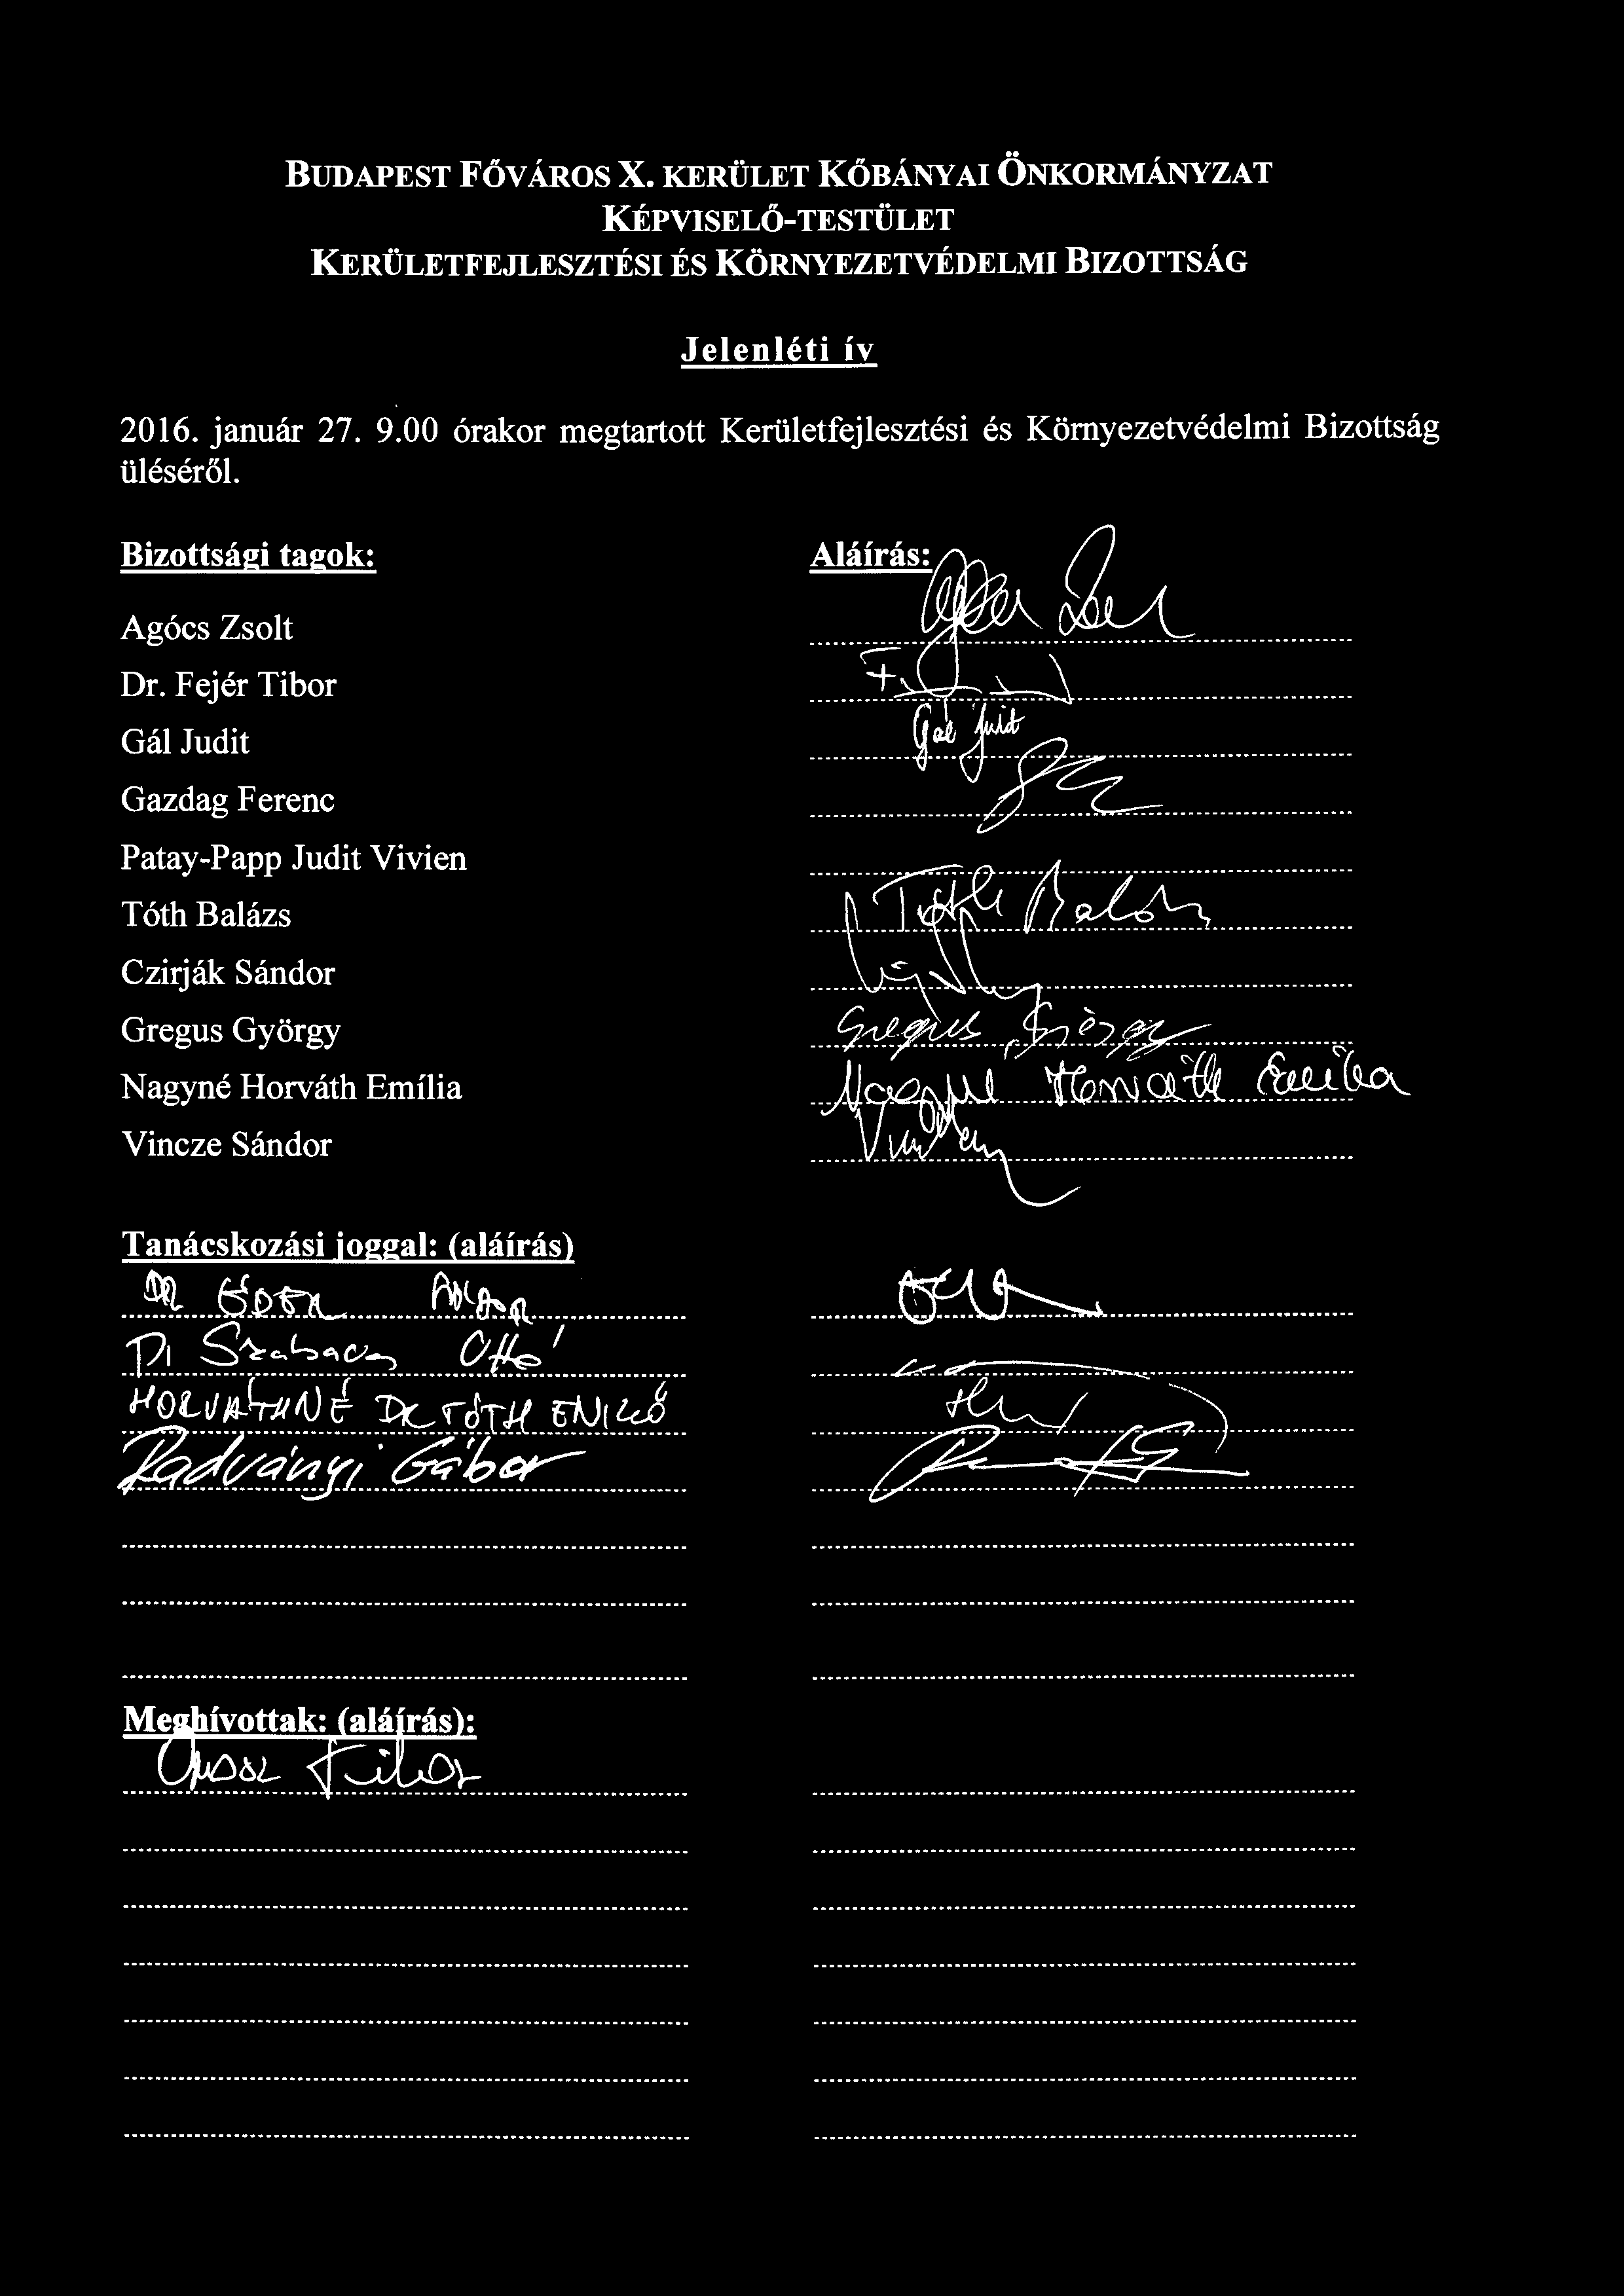 BUDAPEST FŐVÁROS X. KERÜLET KŐBÁNYAI ÖNKORMÁNYZAT
KÉPVISELŐ-TESTÜLET
KERÜLETFEJLESZTÉSI ÉS KÖRNYEZETVÉDELMI BIZOTTSÁG
Jelenléti ív
2016. január 27. 9.00 órakor megtartott Kerületfejlesztési és Környezetvédelmi Bizottság
üléséről.
Bizottsági tagok: Aláírás:
Agócs Zsolt
Dr. Fejér Tibor
Gál Judit Gál Judit
Gazdag Ferenc
Patay-Papp Judit Vivien
Tóth Balázs Tóth Balázs
Czirják Sándor
Gregus György Gregus György
Nagyné Horváth Emília Nagyné Horváth Emília
Vincze Sándor
Tanácskozási joggal: (aláírás)
DR ÉDER
Dr Szabados Ottó
HORVÁTHNÉ DR TÓTH ENIKŐ
Radványi Gábor
Meghívottak: (aláírás):
Tibor